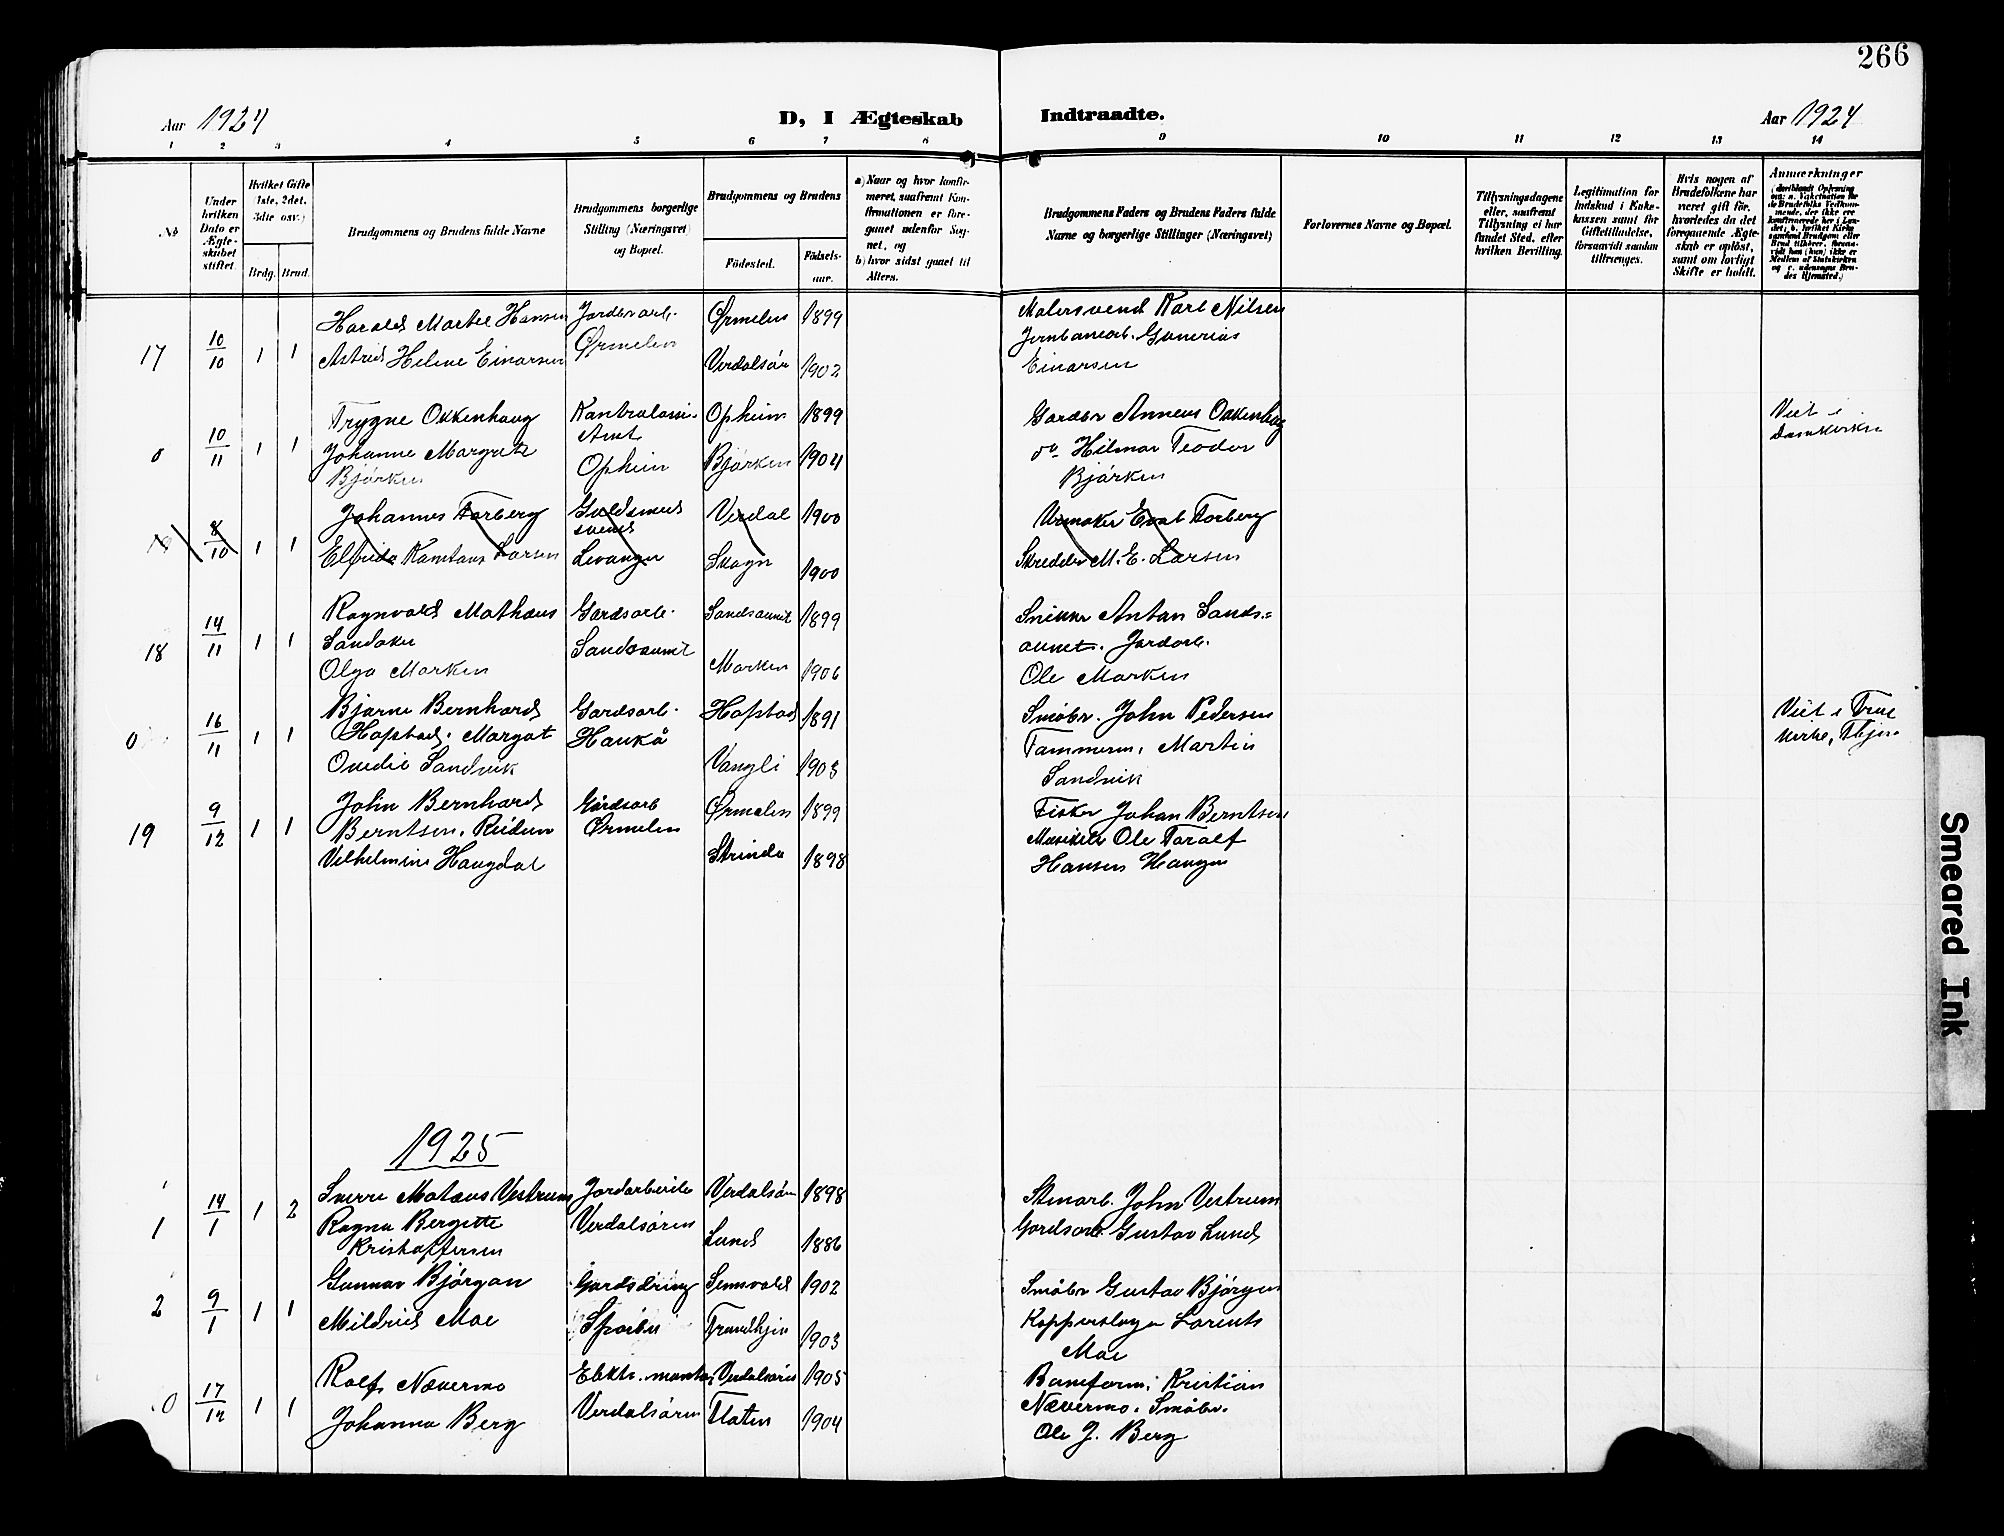 266
Aar 1924
D, I Ægteskab
Indtraadte.
Aar 1924
1 2 3 4 5 6 7 8 9 10 11 12 13 14
No
Under
hvilken
Dato er
Ægte-
skabet
stiftet.
Hvilket Gifte
(1ste, 2det,
3die osv.)
Brdg. Brud.
Brudgommens og Brudens fulde Navne
Brudgommens borgerlige
Stilling (Næringsvei)
og Bopæl.
Brudgommens og Brudens
Fødested.
Fødsels-
aar.
a) Naar og hvor konfir-
meret, saafremt Kon-
firmationen er fore-
gaaet udenfor Sog-
net, og
b) hvor sidst gaaet til
Alters.
Brudgommens Faders og Brudens Faders fulde
Navne og borgerlige Stillinger (Næringsvei)
Forlovernes Navne og Bopæl.
Tillysningsdagene
eller, saafremt
Tillysning ei har
fundet Sted, efter
hvilken Bevilling.
Legitimation for
Indskud i Enke-
kassen samt for
Giftetilladelse,
forsaavidt saadan
tiltrænges.
Hvis nogen af
Brudefolkene har
været gift før,
hvorledes da det
foregaaende Ægte-
skab er opløst,
samt om lovligt
Skifte er holdt.
Anmærkninger
17 10/10 1 1
Harald Martel Hansen
Astrid Helene Einarsen
Jordbrarb.
Ørmelen
Ørmelen 1899
Verdalsør 1902
Malersvend Karl Nilsen
Jernbanearb. Gunerius
Einarsen
0 10/11 1 1
Trygve Okkenhaug
Johanne Margrete
Björken
Opheim
Opheim 1899
Björken 1904
Gardbr Anneus Okkenhaug
do Hilmar Teodor
Björken
Viet i
Domkirken
8/10 1 1
Johannes Forberg
Elfrida Konstans Larsen
Guldsmed
svend
Levanger
Verdal 1900
Skogn 1900
Urmaker Enat Forberg
Skredder M. E. Larsen
18 14/11 1 1
Ragnvald Mathæus
Sandaker
Olga Marken
Gardsarb.
Sandsaunet
Sandsaunet 1899
Marken 1906
Snikker Anton Sands-
aunet. Jordarb.
Ole Marken
0 16/11 1 1
Bjarne Bernhard
Hofstad. Margot
Ovedie Sandvik
Gardsarb.
Haukå
Hofstad 1891
Vangli 1903
Småbr. John Pedersen
Tømmerm. Martin
Sandvik
Viet i Frue
Kirke, Thjem
19 9/12 1 1
John Bernhard
Berntsen. Reidun
Vilhelmine Haugdal
Gårdsarb
Ørmelen
Ørmelen 1899
Strinda 1898
Fisker Johan Berntsen
Musiker Ole Toralf
Hansen Haugen
1925
1 14/1 1 2
Sverre Mataus Vestrum
Ragna Bergitte
Kristoffersen
Jordarbeider
Verdalsøren
Verdalsøren 1898
Lund 1886
Stenarb. John Vestrum
Gardsarb. Gustav Lund
2 9/1 1 1
Gunnar Björgan
Mildrid Moe
Gardsdreng
Snåsvold 1902
Trondhjem 1903
Småbr Gustav Björgan
Kopperslager Lorents
Moe
0 17/12 1 1
Rolf Nævermo
Johanna Berg
Elektr. montør
Verdalsøren
Verdalsøren 1905
Floten 1904
Baneform. Kristian
Nævermo. Småbr.
Ole J. Berg
Smeared Ink